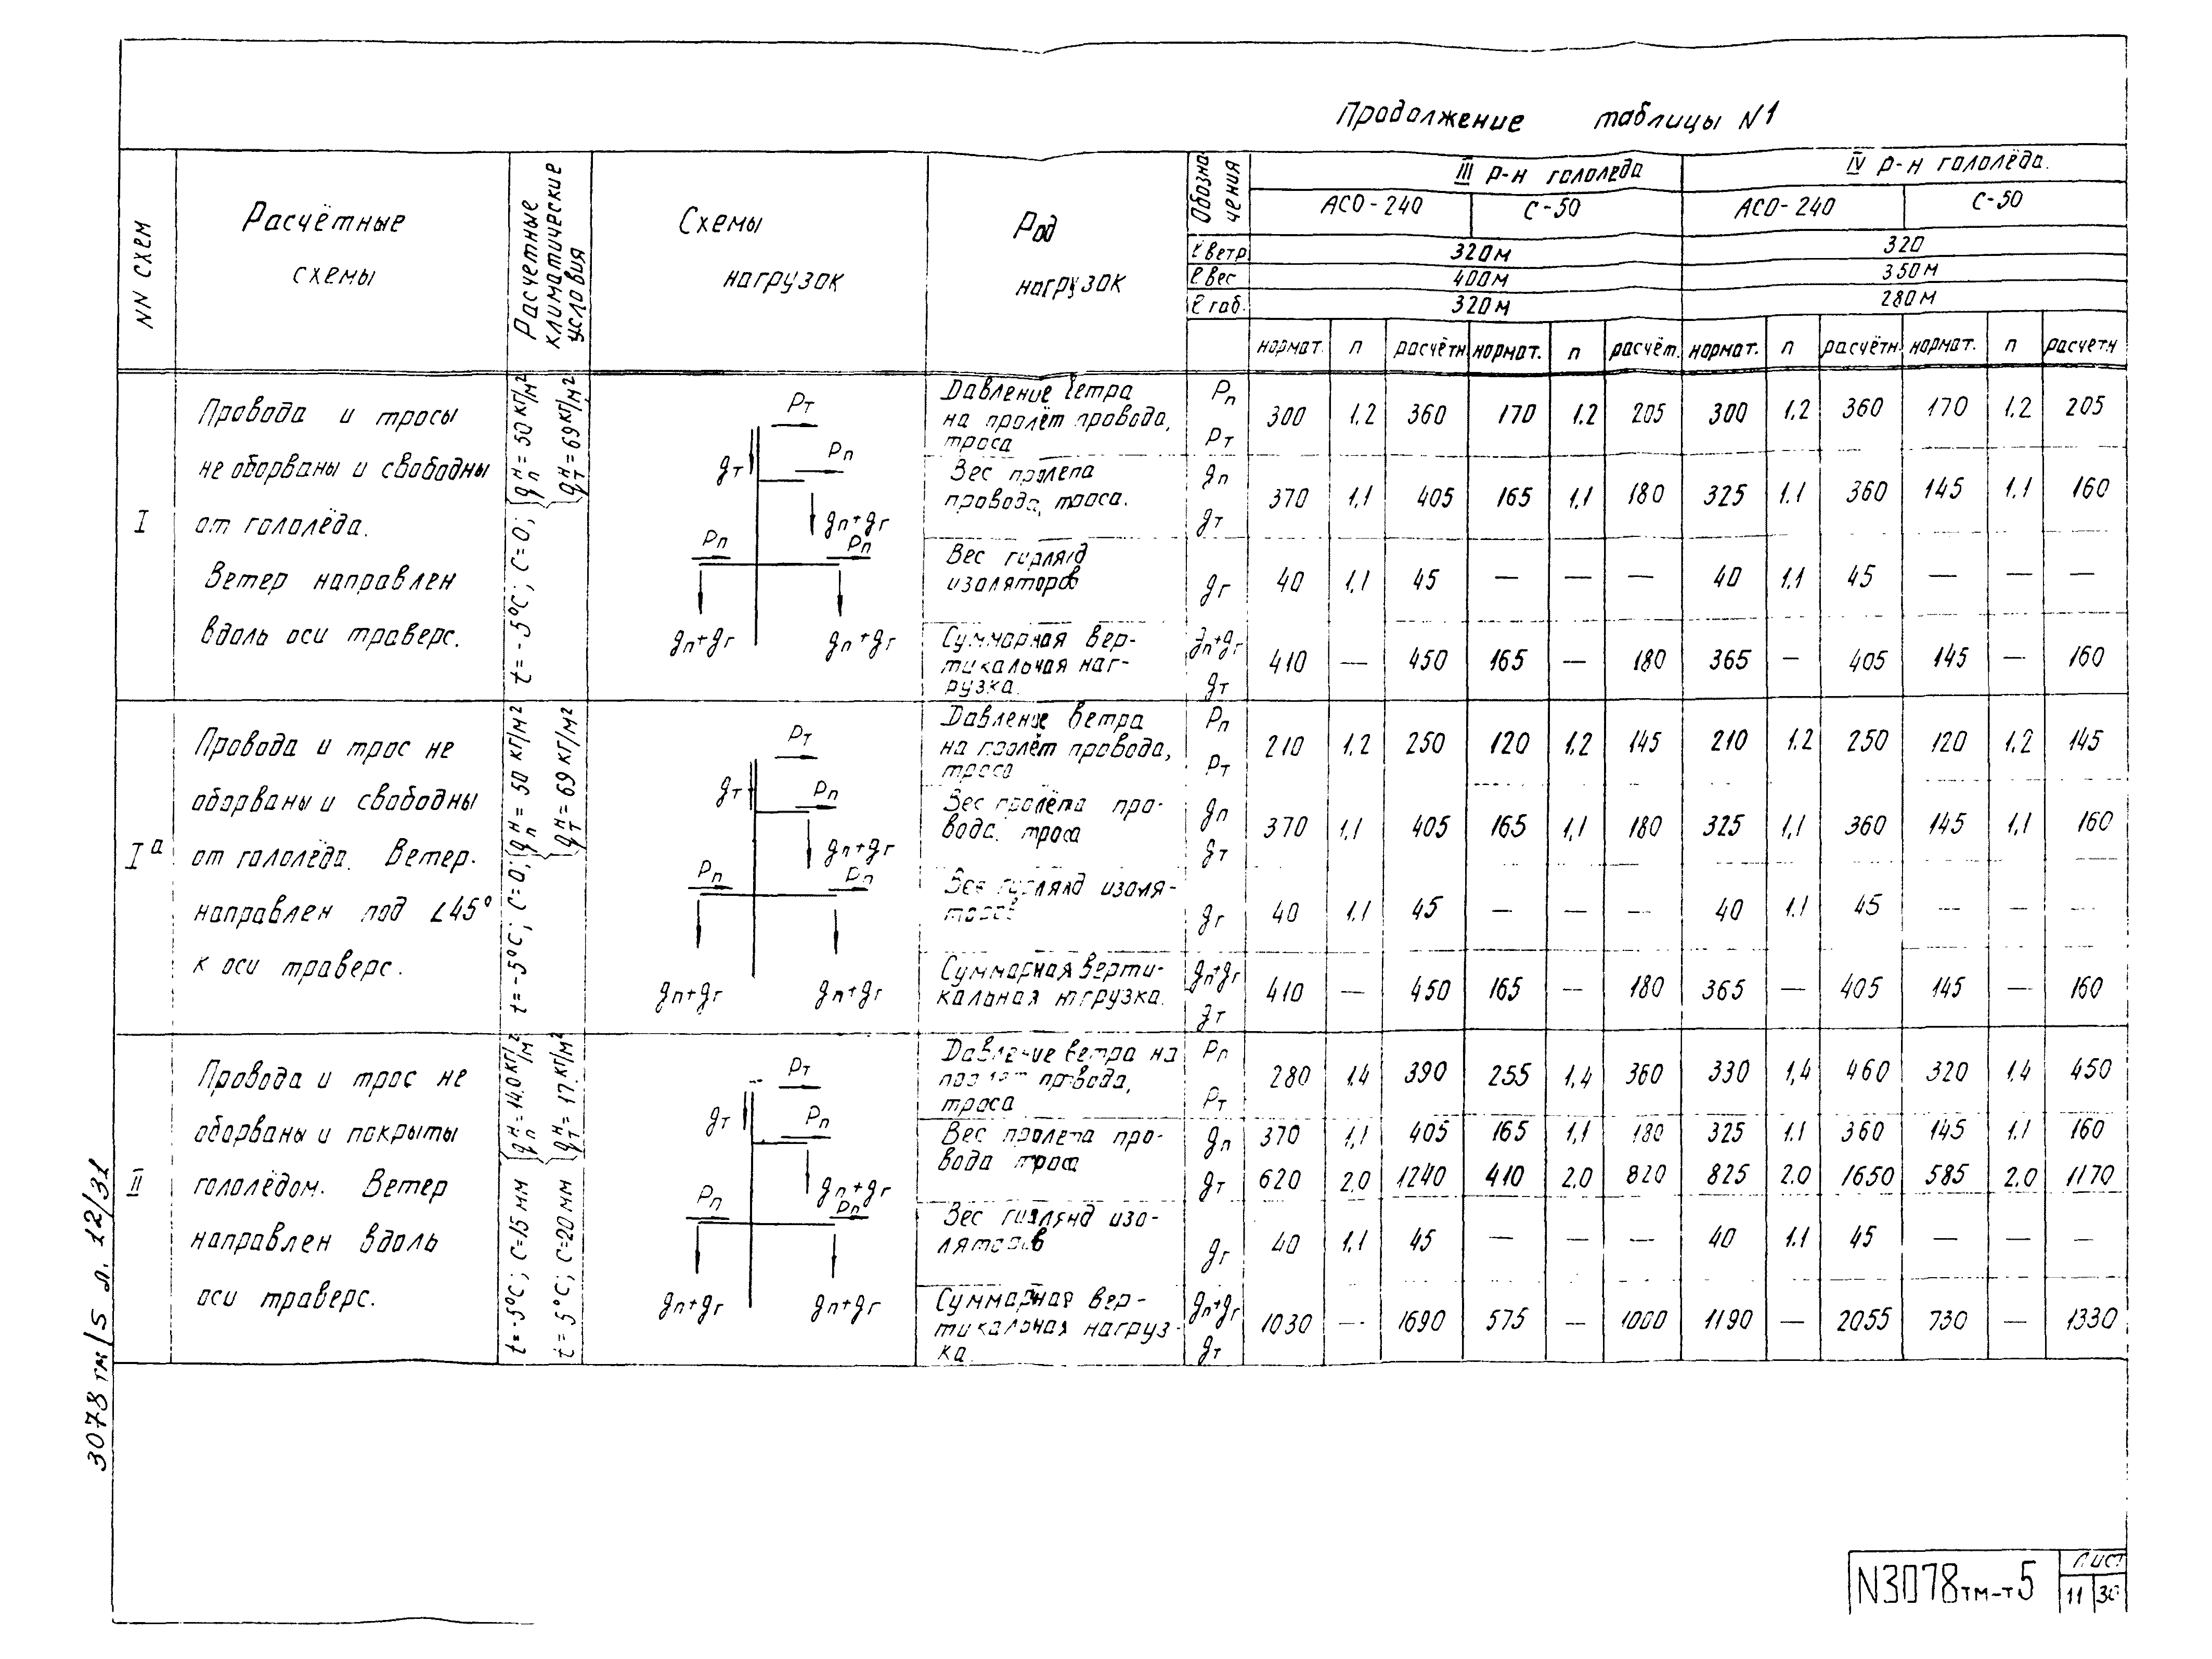 Продолжение таблицы N1
NN схем
Расчётные схемы
Расчетные климатические условия
Схемы нагрузок
Род нагрузок
Обозначения
III р-н гололеда
IV р-н гололёда.
АСО-240
С-50
АСО-240
С-50
ℓ ветр 320м 320
ℓ вес 400м 350м
ℓ габ. 320м 280м
нормат. п расчётн нормат. п расчёт. нормат. п расчётн нормат. п расчетн
I
Провода и тросы
не оборваны и свободны
от гололёда.
Ветер направлен
вдоль оси траверс.
t=-5°С; С=0; {gпн=50кг/м²
{gтн=69кг/м²
Pт
gт
Pп
gп+gг
Pп
Pп
gп+gг
gп+gг
Давление ветра
на пролёт провода,
троса
Pп
Pт
300 1.2 360 170 1.2 205 300 1.2 360 170 1.2 205
Вес пролета
провода, троса.
gп
gт
370 1.1 405 165 1.1 180 325 1.1 360 145 1.1 160
Вес гирлянд
изоляторов
gг
40 1.1 45 — — — 40 1.1 45 — — —
Суммарная вер-
тикальная наг-
рузка.
gп+gг
gт
410 — 450 165 — 180 365 — 405 145 — 160
Iа
Провода и трос не
оборваны и свободны
от гололёда. Ветер.
направлен под ∠45°
к оси траверс.
t=-5°С; С=0; {gпн=50 кг/м²
{gтн=69 кг/м²
Pт
gт
Pп
gп+gг
Pп
Pп
gп+gг
gп+gг
Давление ветра
на пролёт провода,
троса
Pп
Pт
210 1.2 250 120 1.2 145 210 1.2 250 120 1.2 145
Вес пролёта про-
вода. троса
gп
gт
370 1.1 405 165 1,1 180 325 1,1 360 145 1,1 160
Вес гирлянд изоля-
торов
gг
40 1.1 45 — — — 40 1.1 45 — — —
Суммарная верти-
кальная нагрузка.
gп+gг
gт
410 — 450 165 — 180 365 — 405 145 — 160
II
Провода и трос не
оборваны и покрыты
гололёдом. Ветер
направлен вдоль
оси траверс.
t=-5°С; С=15 мм {gпн=14.0кг/м²
t=5°С; С=20мм {gтн=17.кг/м²
Pт
gт
Pп
gп+gг
Pп
Pп
gп+gг
gп+gг
Давление ветра на
пролет провода,
троса
Pп
Pт
280 1.4 390 255 1,4 360 330 1,4 460 320 1.4 450
Вес пролета про-
вода троса
gп 370 1,1 405 165 1,1 180 325 1.1 360 145 1.1 160
gт 620 2.0 1240 410 2.0 820 825 2.0 1650 585 2.0 1170
Вес гирлянд изо-
ляторов
gг
40 1.1 45 — — — 40 1.1 45 — — —
Суммарная вер-
тикальная нагруз-
ка.
gп+gг
gт
1030 — 1690 575 — 1000 1190 — 2055 730 — 1330
3078 тм/5 л. 12/31
N3078тм-т5
Лист
11